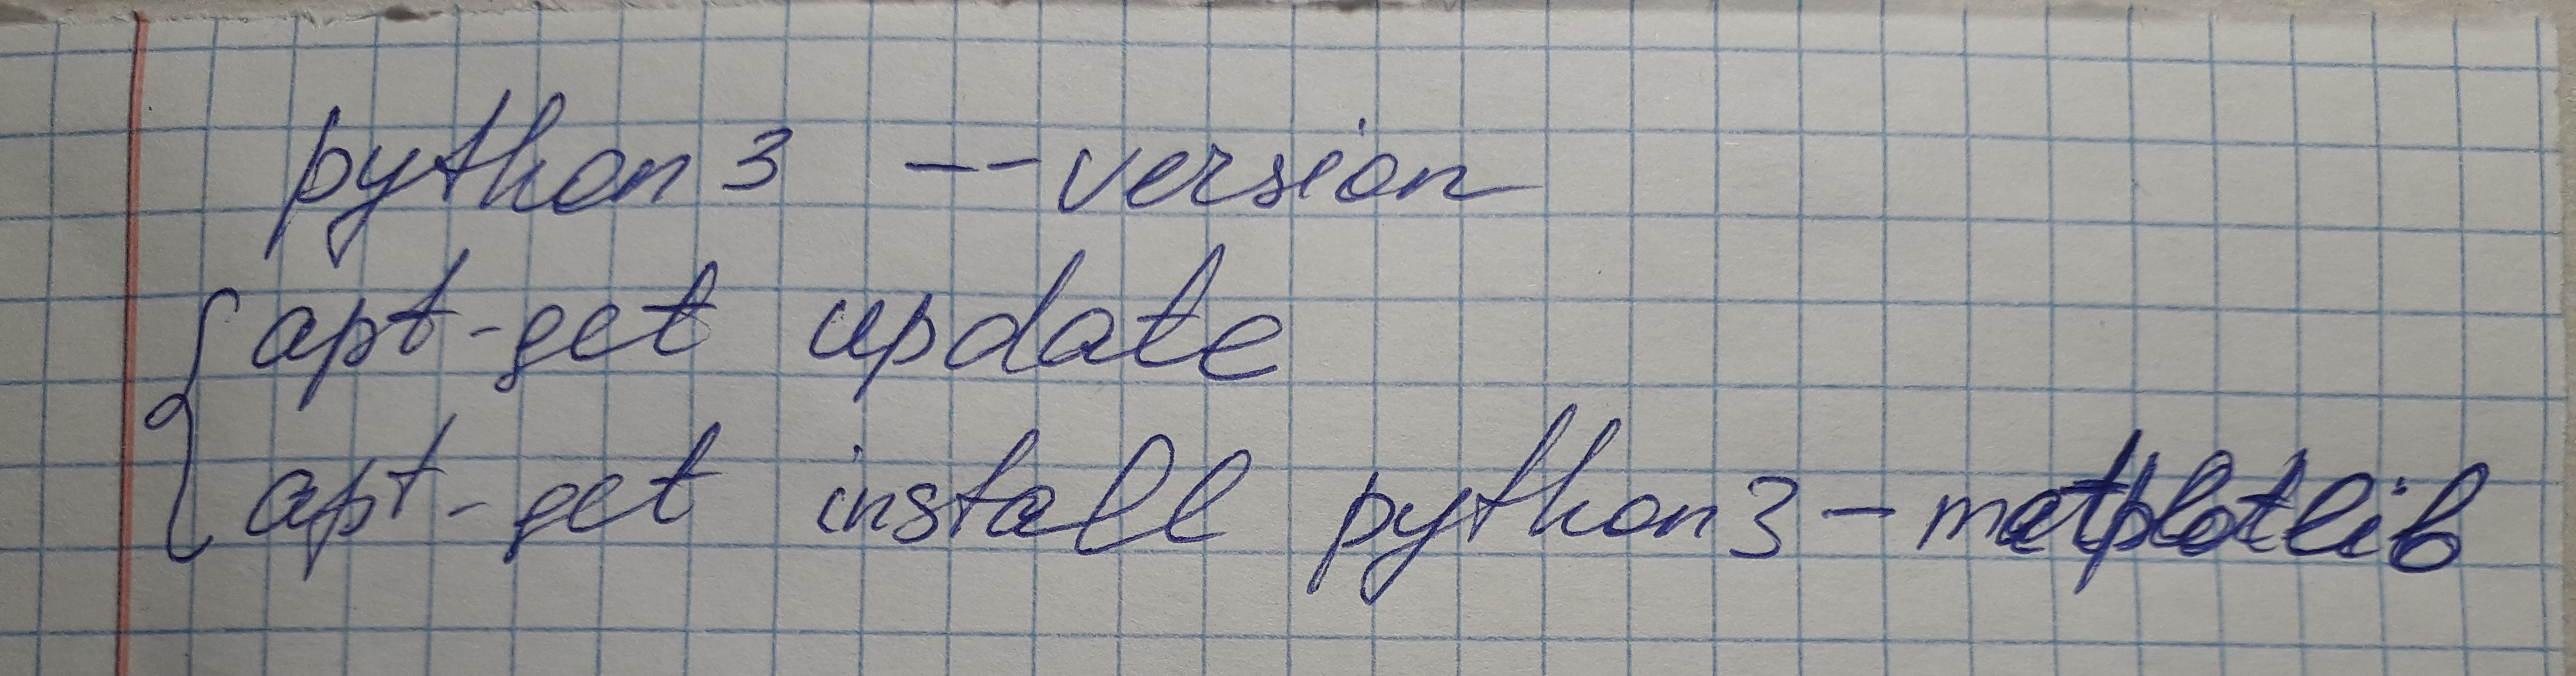 python3 --version
apt-get update
apt-get install python3-matplotlib